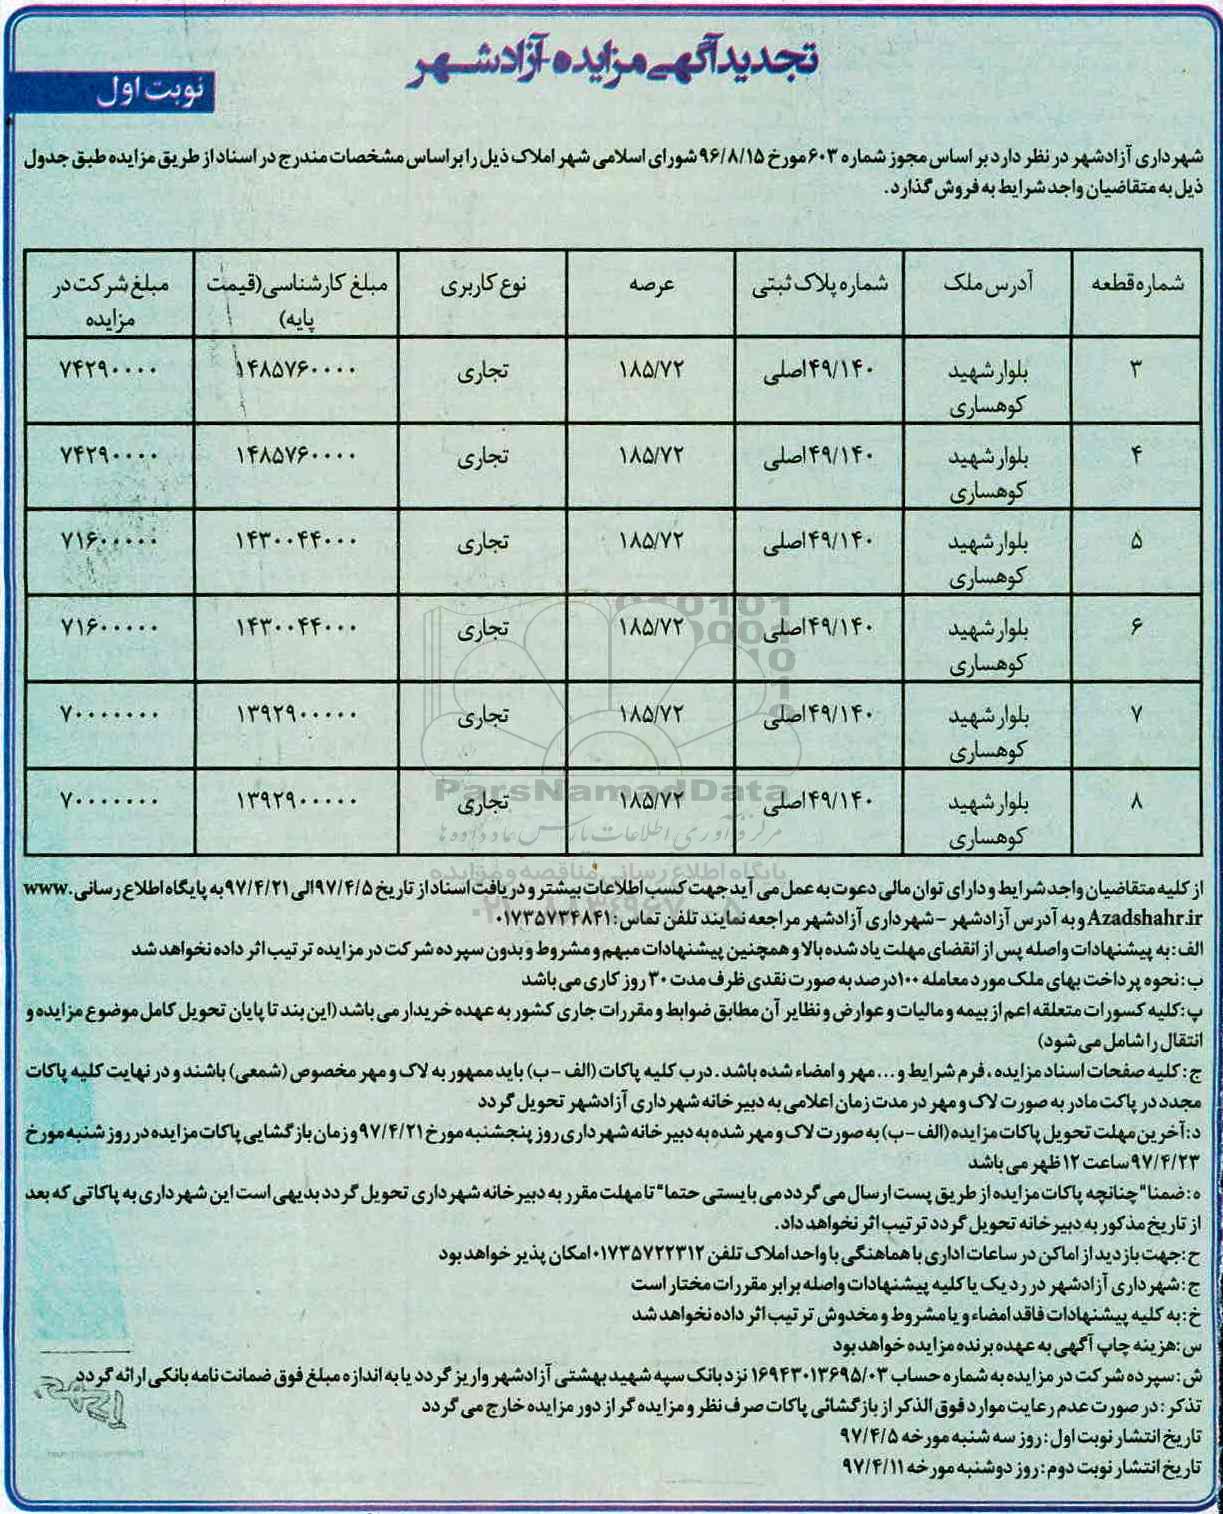 تجدیدآگهی مزایده-آزادشهر
نوبت اول
شهرداری آزادشهر در نظر دارد بر اساس مجوز شماره ۶۰۳مورخ ۹۶/۸/۱۵شورای اسلامی شهر املاک ذیل را براساس مشخصات مندرج در اسناد از طریق مزایده طبق جدول
ذیل به متقاضیان واجد شرایط به فروش گذارد.
شماره قطعه | آدرس ملک | شماره پلاک ثبتی | عرصه | نوع کاربری | مبلغ کارشناسی(قیمت پایه) | مبلغ شرکت در مزایده
۳ | بلوار شهید کوهساری | ۴۹/۱۴۰اصلی | ۱۸۵/۷۲ | تجاری | ۱۴۸۵۷۶۰۰۰۰ | ۷۴۲۹۰۰۰۰
۴ | بلوار شهید کوهساری | ۴۹/۱۴۰اصلی | ۱۸۵/۷۲ | تجاری | ۱۴۸۵۷۶۰۰۰۰ | ۷۴۲۹۰۰۰۰
۵ | بلوار شهید کوهساری | ۴۹/۱۴۰اصلی | ۱۸۵/۷۲ | تجاری | ۱۴۳۰۰۴۴۰۰۰ | ۷۱۶۰۰۰۰۰
۶ | بلوار شهید کوهساری | ۴۹/۱۴۰اصلی | ۱۸۵/۷۲ | تجاری | ۱۴۳۰۰۴۴۰۰۰ | ۷۱۶۰۰۰۰۰
۷ | بلوار شهید کوهساری | ۴۹/۱۴۰اصلی | ۱۸۵/۷۲ | تجاری | ۱۳۹۲۹۰۰۰۰۰ | ۷۰۰۰۰۰۰۰
۸ | بلوار شهید کوهساری | ۴۹/۱۴۰اصلی | ۱۸۵/۷۲ | تجاری | ۱۳۹۲۹۰۰۰۰۰ | ۷۰۰۰۰۰۰۰
ParsNamadData
پایگاه اطلاع رسانی مناقصه و مزایده
از کلیه متقاضیان واجد شرایط و دارای توان مالی دعوت به عمل می آید جهت کسب اطلاعات بیشتر و دریافت اسناد از تاریخ ۹۷/۴/۵الی ۹۷/۴/۲۱به پایگاه اطلاع رسانی .www
Azadshahr.ir و به آدرس آزادشهر – شهرداری آزادشهر مراجعه نمایند تلفن تماس: ۰۱۷۳۵۷۳۴۸۴۱
الف:به پیشنهادات واصله پس از انقضای مهلت یاد شده بالا و همچنین پیشنهادات مبهم و مشروط و بدون سپرده شرکت در مزایده ترتیب اثر داده نخواهد شد
ب:نحوه پرداخت بهای ملک مورد معامله ۱۰۰درصد به صورت نقدی ظرف مدت ۳۰ روز کاری می باشد
پ:کلیه کسورات متعلقه اعم از بیمه و مالیات و عوارض و نظایر آن مطابق ضوابط و مقررات جاری کشور به عهده خریدار می باشد (این بند تا پایان تحویل کامل موضوع مزایده و
انتقال را شامل می شود)
ج:کلیه صفحات اسناد مزایده ، فرم شرایط و... مهر و امضاء شده باشد . درب کلیه پاکات (الف - ب) باید ممهور به لاک و مهر مخصوص (شمعی) باشند و در نهایت کلیه پاکات
مجدد در پاکت مادر به صورت لاک و مهر در مدت زمان اعلامی به دبیرخانه شهرداری آزادشهر تحویل گردد
د:آخرین مهلت تحویل پاکات مزایده (الف - ب) به صورت لاک و مهر شده به دبیرخانه شهرداری روز پنجشنبه مورخ ۹۷/۴/۲۱و زمان بازگشایی پاکات مزایده در روز شنبه مورخ
۹۷/۴/۲۳ساعت ۱۲ ظهر می باشد
ه:ضمنا" چنانچه پاکات مزایده از طریق پست ارسال می گردد می بایستی حتما" تا مهلت مقرر به دبیرخانه شهرداری تحویل گردد بدیهی است این شهرداری به پاکاتی که بعد
از تاریخ مذکور به دبیرخانه تحویل گردد ترتیب اثر نخواهد داد.
ح:جهت بازدید از اماکن در ساعات اداری با هماهنگی با واحد املاک تلفن ۰۱۷۳۵۷۲۲۳۱۲امکان پذیر خواهد بود
ج:شهرداری آزادشهر در رد یک یا کلیه پیشنهادات واصله برابر مقررات مختار است
خ:به کلیه پیشنهادات فاقد امضاء و یا مشروط و مخدوش ترتیب اثر داده نخواهد شد
س:هزینه چاپ آگهی به عهده برنده مزایده خواهد بود
ش:سپرده شرکت در مزایده به شماره حساب ۱۶۹۴۳۰۱۳۶۹۵/۰۳ نزد بانک سپه شهید بهشتی آزادشهر واریز گردد یا به اندازه مبلغ فوق ضمانت نامه بانکی ارائه گردد
تذکر:در صورت عدم رعایت موارد فوق الذکر از بازگشائی پاکات صرف نظر و مزایده گر از دور مزایده خارج می گردد
تاریخ انتشار نوبت اول:روز سه شنبه مورخه ۹۷/۴/۵
تاریخ انتشار نوبت دوم:روز دوشنبه مورخه ۹۷/۴/۱۱